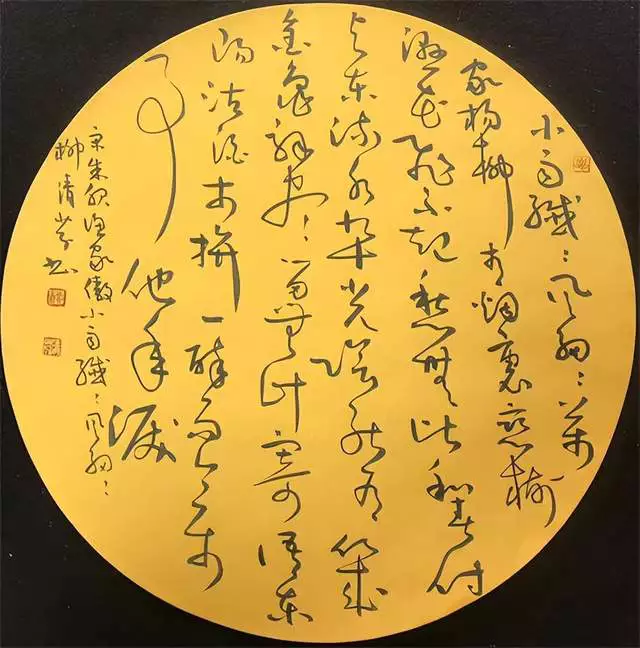 小雨纖〻風細〻萬
家楊柳青烟裏戀樹
濕花飛不起愁無比和春付
与東流水九十光陰能有幾
金龜解盡留無計寄語東
陽沽酒市拚一醉而今樂
事他年淚
宋朱服漁家傲小雨纖〻風細〻
柳清书